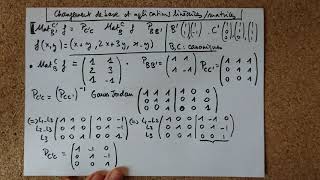 Changement de base et applications linéaires/matrices
Mat_B^C' f = P_C'C Mat_B^C f P_BB'
B' (1 1) (1 -1) . C' (1 0 0) (1 1 0) (1 1 1)
f(x,y) = (x+y, 2x+3y, x-y)
B,C: canoniques
• Mat_B^C f = (1 1 / 2 3 / 1 -1)
P_BB' = (1 1 / 1 -1)
P_CC' = (1 1 1 / 0 1 1 / 0 0 1)
P_C'C = (P_CC')^-1 Gauss Jordan (1 1 1 | 1 0 0 / 0 1 1 | 0 1 0 / 0 0 1 | 0 0 1)
(=) L1-L3 L2-L3 L3 (1 1 0 | 1 0 -1 / 0 1 0 | 0 1 -1 / 0 0 1 | 0 0 1)
(=) L1-L2 L2 L3 (1 0 0 | 1 -1 0 / 0 1 0 | 0 1 -1 / 0 0 1 | 0 0 1)
P_C'C = (1 -1 0 / 0 1 -1 / 0 0 1)